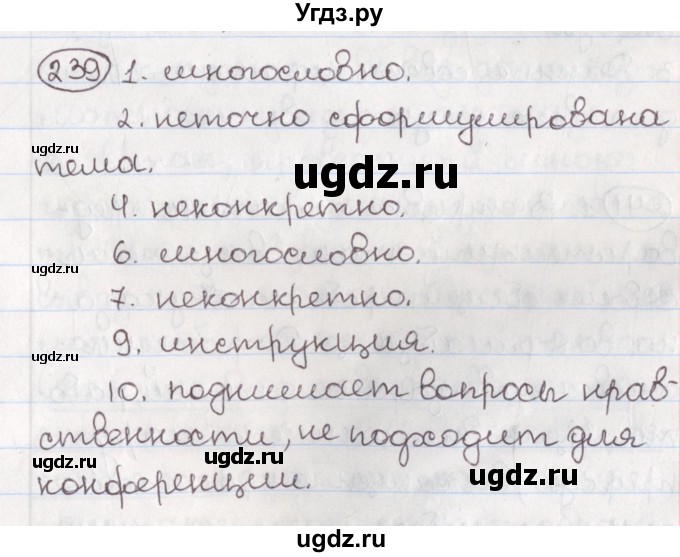 Угдз.ру
239 1. многословно.
2. неточно сформулирована
ugdz.ru
тема.
ugdz.ru
4. неконкретно.
6. многословно.
ugdz.ru
7. неконкретно.
9. инструкция.
ugdz.ru
ugdz.ru
10. поднимает вопросы нрав-
ственности, не подходит для
ugdz.ru
ugdz.ru
ugdz.ru
конференции.
ugdz.ru